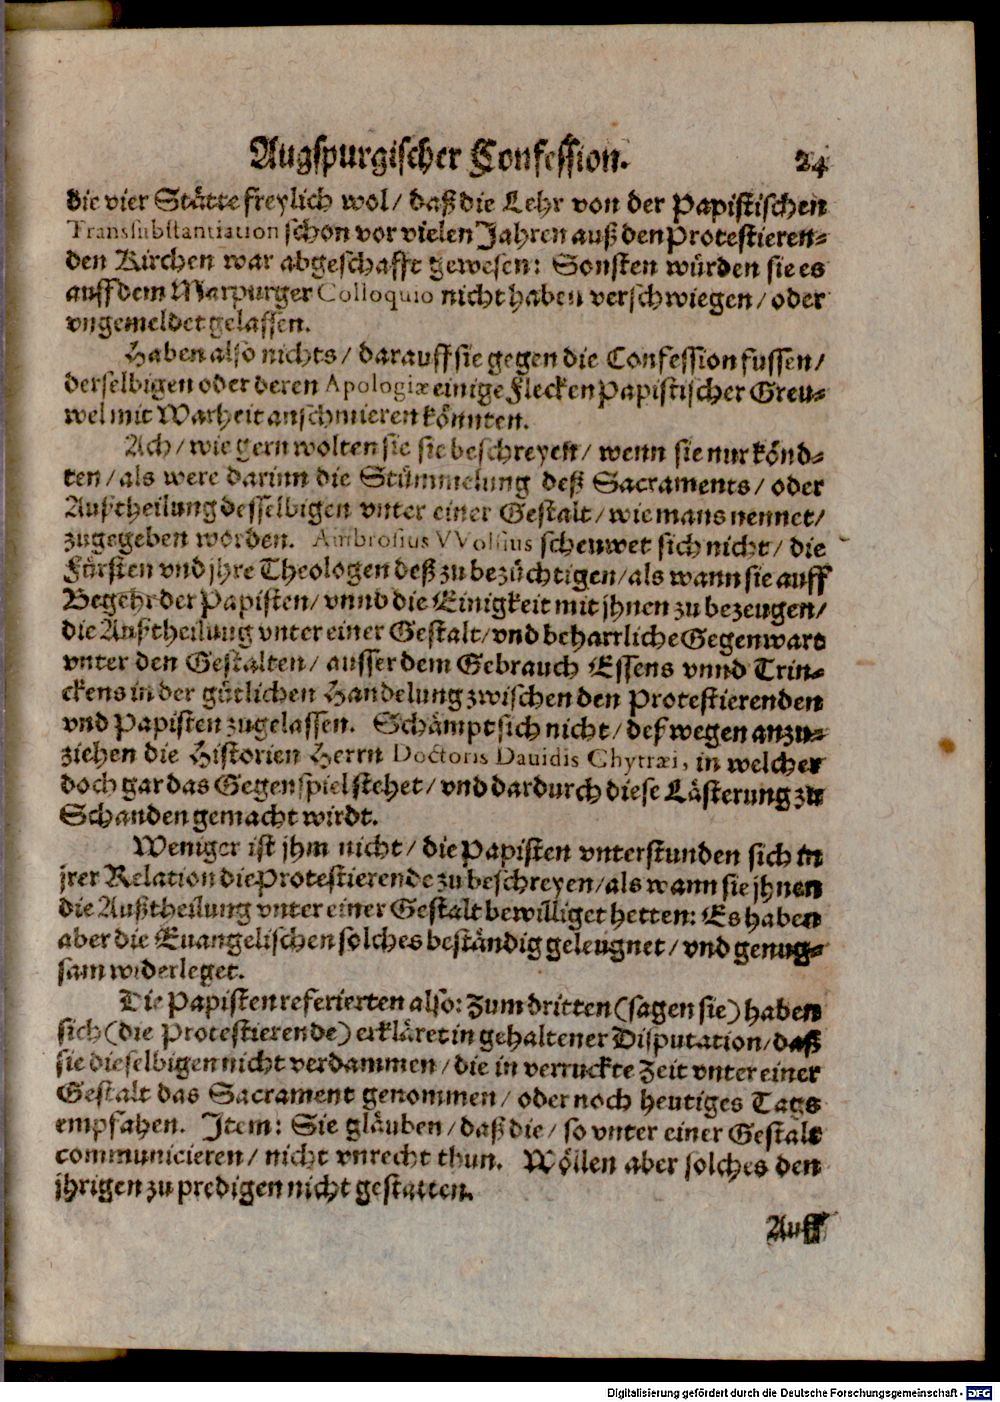 Augspurgischer Confession. 24
die vier Stätte freylich wol / daß die Lehr von der Papistischen
Transsubstantiation schon vor vielen Jahren auß den Protestieren-
den Kirchen war abgeschafft gewesen: Sonsten würden sie es
auff dem Marpurger Colloquio nicht haben verschwiegen / oder
vngemeldet gelassen.
Haben also nichts / darauff sie gegen die Confession fussen /
derselbigen oder deren Apologiæ einige Flecken Papistischer Greu-
wel mit Warheit anschmieren könnten.
Ach / wie gern wolten sie sie beschreyen / wenn sie nur könd-
ten / als were darinn die Stümmelung deß Sacraments / oder
Außtheilung desselbigen vnter einer Gestalt / wie mans nennet /
zugegeben worden. Ambrosius VVolfius scheuwet sich nicht / die
Fürsten vnd jhre Theologen deß zu bezüchtigen / als wann sie auff
Begehr der Papisten / vnnd die Einigkeit mit jhnen zu bezeugen /
die Außtheilung vnter einer Gestalt / vnd beharrliche Gegenwart
vnter den Gestalten / ausser dem Gebrauch Essens vnnd Trin-
ckens in der gütlichen Handelung zwischen den Protestierenden
vnd Papisten zugelassen. Schämpt sich nicht / deßwegen anzu-
ziehen die Historien Herrn Doctoris Dauidis Chytræi, in welcher
doch gar das Gegenspiel stehet / vnd dardurch diese Lästerung zu
Schanden gemacht wirdt.
Weniger ist jhm nicht / die Papisten vnterstunden sich in
jrer Relation die Protestierende zu beschreyen / als wann sie jhnen
die Außtheilung vnter einer Gestalt bewilliget hetten: Es haben
aber die Euangelischen solches beständig geleugnet / vnd genug-
sam widerleget.
Die Papisten referierten also: Zum dritten (sagen sie) haben
sich (die Protestierende) erkläret in gehaltener Disputation / daß
sie dieselbigen nicht verdammen / die in verruckte Zeit vnter einer
Gestalt das Sacrament genommen / oder noch heutiges Tags
empfahen. Item: Sie gläuben / daß die / so vnter einer Gestalt
communicieren / nicht vnrecht thun. Wöllen aber solches den
jhrigen zu predigen nicht gestatten.
Auff
Digitalisierung gefördert durch die Deutsche Forschungsgemeinschaft - DFG